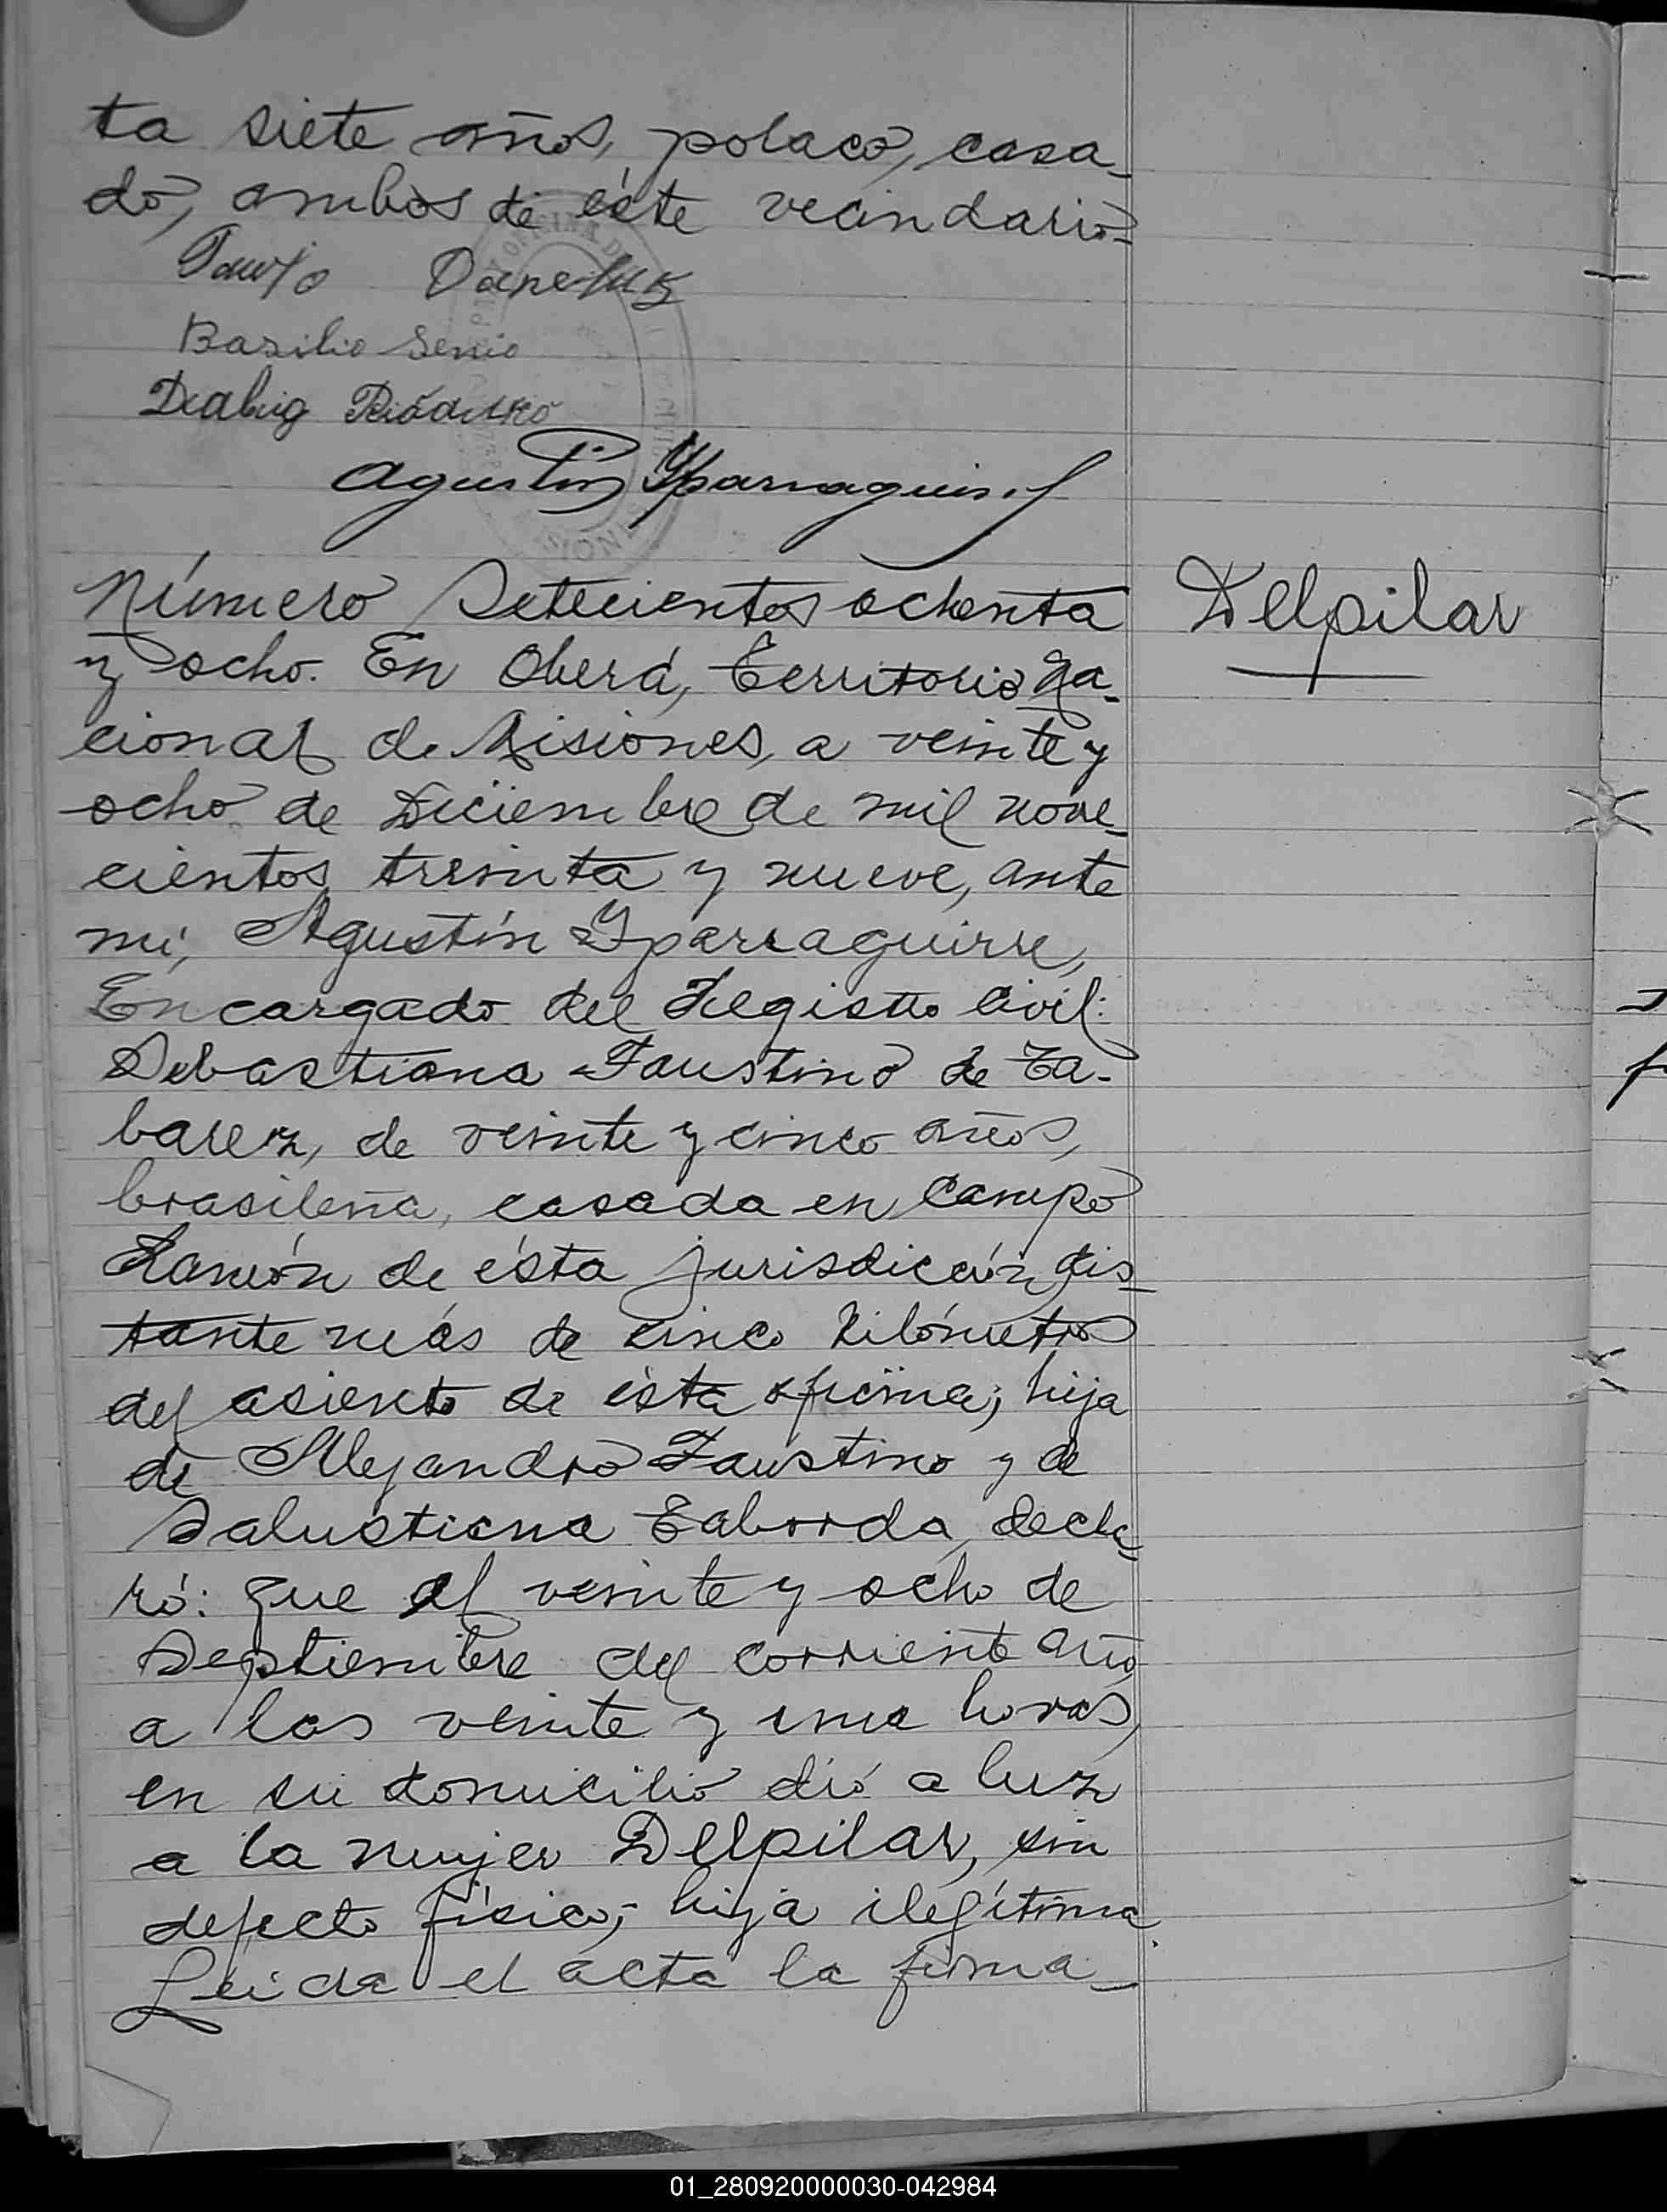 ta siete años, polaco, casa_
do, ambos de éste vecindario_
Daneluk
Basilio Senio
Agustín Yparraguirre
Número Setecientos ochenta
y ocho. En Oberá, Territorio Na_
cional de Misiones, a veinte y
ocho de Diciembre de mil nove_
cientos treinta y nueve, ante
mí, Agustín Yparraguirre,
Encargado del Registro Civil:
Sebastiana Faustino de Ta-
barez, de veinte y cinco años,
brasileña, casada en Campo
Ramón de ésta jurisdicción dis_
tante más de cinco kilómetros
del asiento de ésta oficina; hija
de Alejandro Faustino y de
Salustiana Taborda, decla_
ró: que el veinte y ocho de
Septiembre del corriente año,
a las veinte y una horas,
en su domicilio dió a luz
a la mujer Delpilar, sin
defecto físico; hija ilegítima.
Leida el acta la firma_
Delpilar
01_280920000030-042984